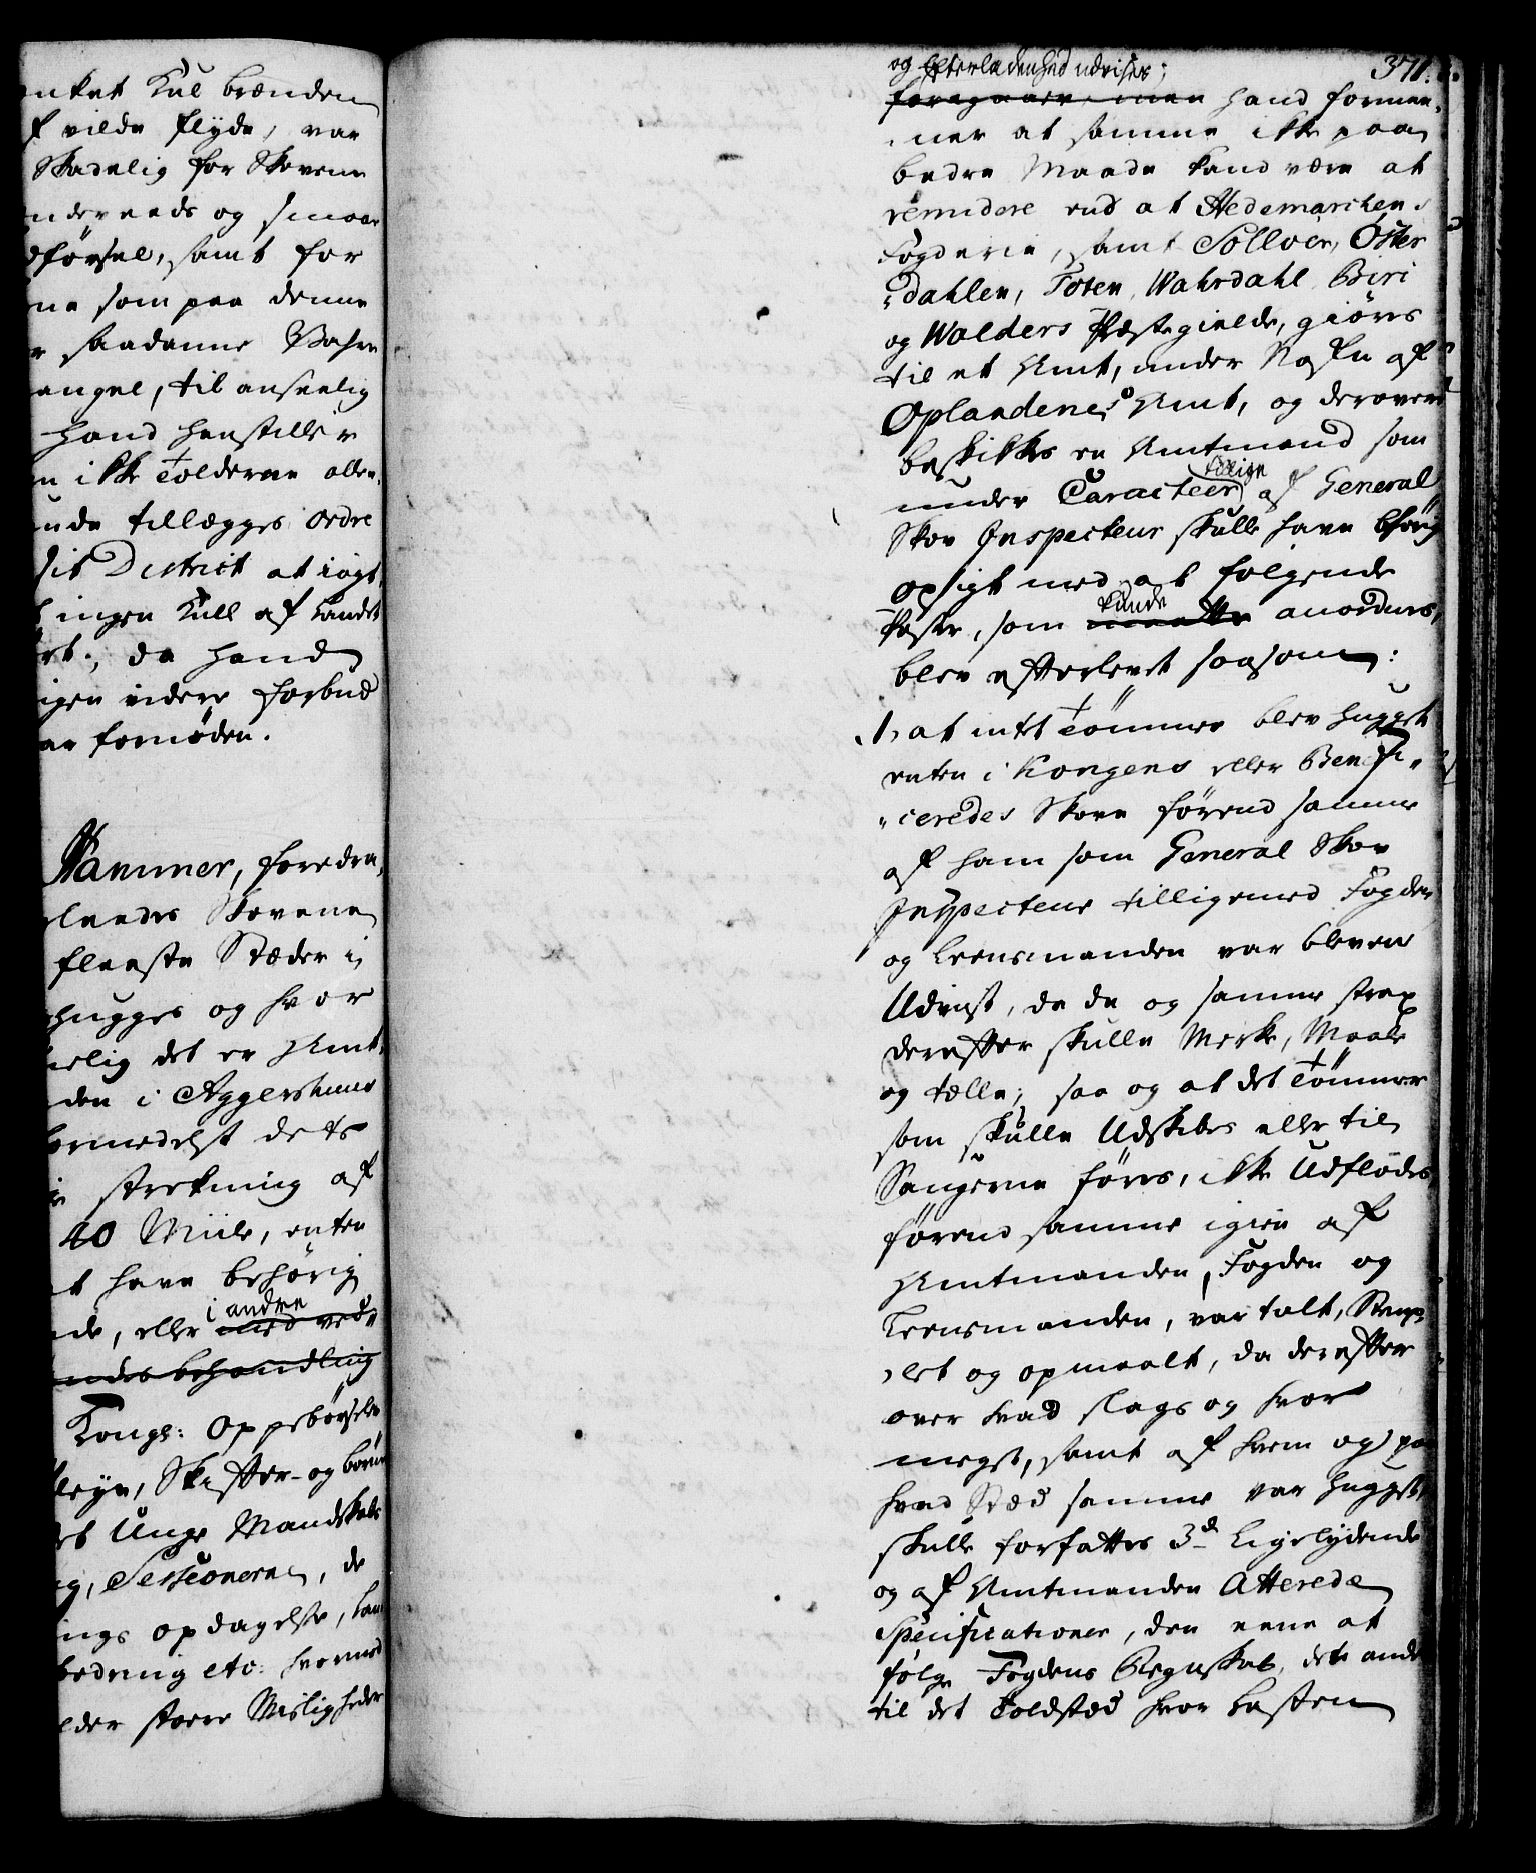 nket Kul brænden
f vilde flyde, var
Skadelig for Skovene
nderveds og smaae
dførsel, samt for
ne som paa denne
r saadanne Vahre
angel, til anseelig
hand henstiller
n ikke Tolderne allee
unde tillægges Ordre
sit District at iagt
ingen Kull af Landet
rt; da hand
igen videre Forbud
ar fornøden.
Hammer, foredra,
landes Skovene
fleeste Stæder i
hugges og hvor
elig det er Amt,
den i Aggershuus
formedelst dets
strekning af
40 Miile, enten
t have behørig
i andre
nde, eller med ved
ndes behandling
Kongl: Oppebørseler
leye, Skifter- og børne
et Unge Mandskabs
g, Sessionerne, de
ings opdagelse, Lan
bedring etc: hvorved
lder større Misligheder
371.
og Efterladenhed udvises;
foregaaer, men hand formee,
ner at samme ikke paa
bedre Maade kand være at
remidere end at Hedemarchens
Fogderie, samt Solloer, Øster
dahlen, Toten, Wahrdahl, Biri
og Walders Præstegielde, giøres
til et Amt, under Nafn af
Oplandenes Amt, og derover
beskikkes en Amtmand som
under Caracteer af General
Skov Inspecteur skulle have behørig
opsigt med at følgende
kunde
Poster, som maatte anordnes,
blev efterlevet saasom:
1, at intet Tømmer blev hugget
enten i Kongens eller Benefi-
ceredes Skove førend samme
af ham som General Skov
Inspecteur tilligemed Fogden
og Leensmanden var bleven
Udviist, da de og samme strax
derefter skulle Merke, Maale
og tælle; saa og at det Tømmer
som skulle Udskibes eller til
Saugerne føres, ikke Udflødes,
førend samme igien af
Amtmanden, Fogden og
Leensmanden, var talt, Stemp-
let og opmaalt, da derefter
over hvad slags og hvor
meget, samt af hvem og paa
hvad Stæd samme var hugget,
skulle forfattes 3de Ligelydende
og af Amtmanden Atterede
Specificationer, den eene at
følge Fogdens Regnskab, det ande
til det Toldsted hvor Lasten